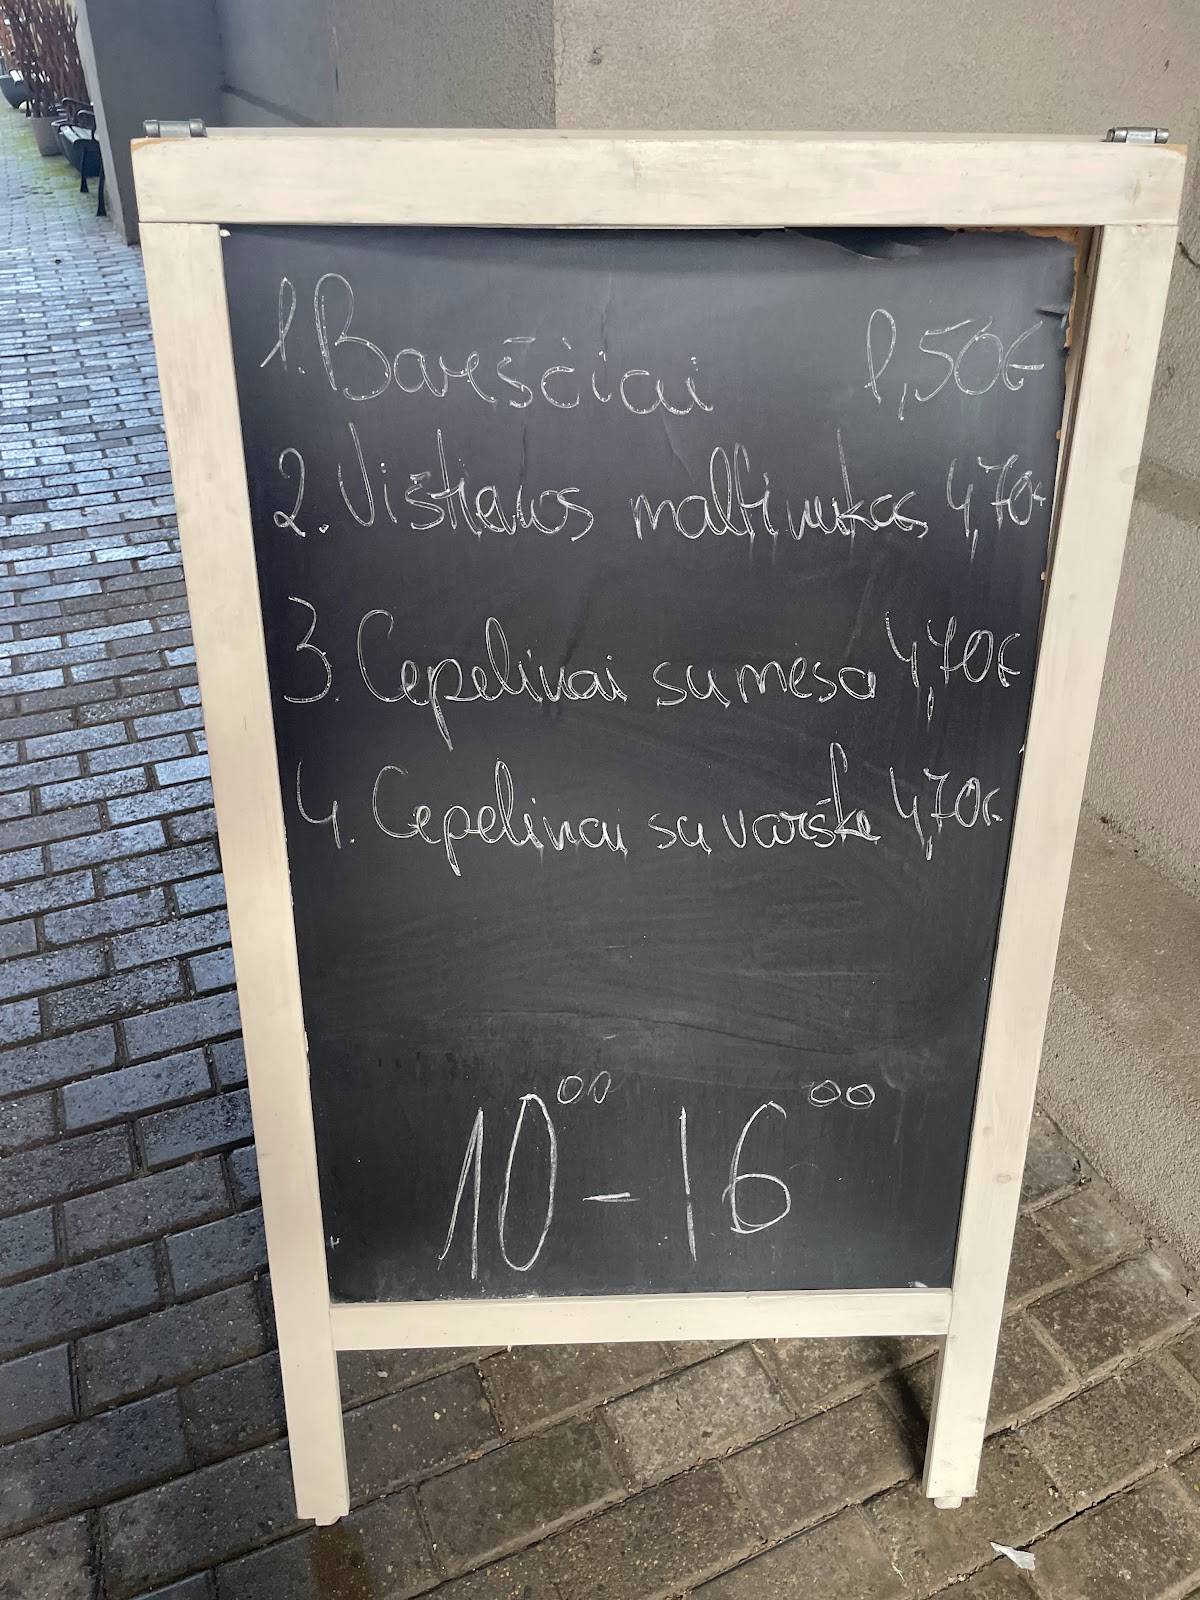 1. Barščiai 1,50€
2. Vištienos maltinukas 4,70€
3. Cepelinai su mėsa 4,70€
4. Cepelinai su varške 4,70€
10⁰⁰ - 16⁰⁰